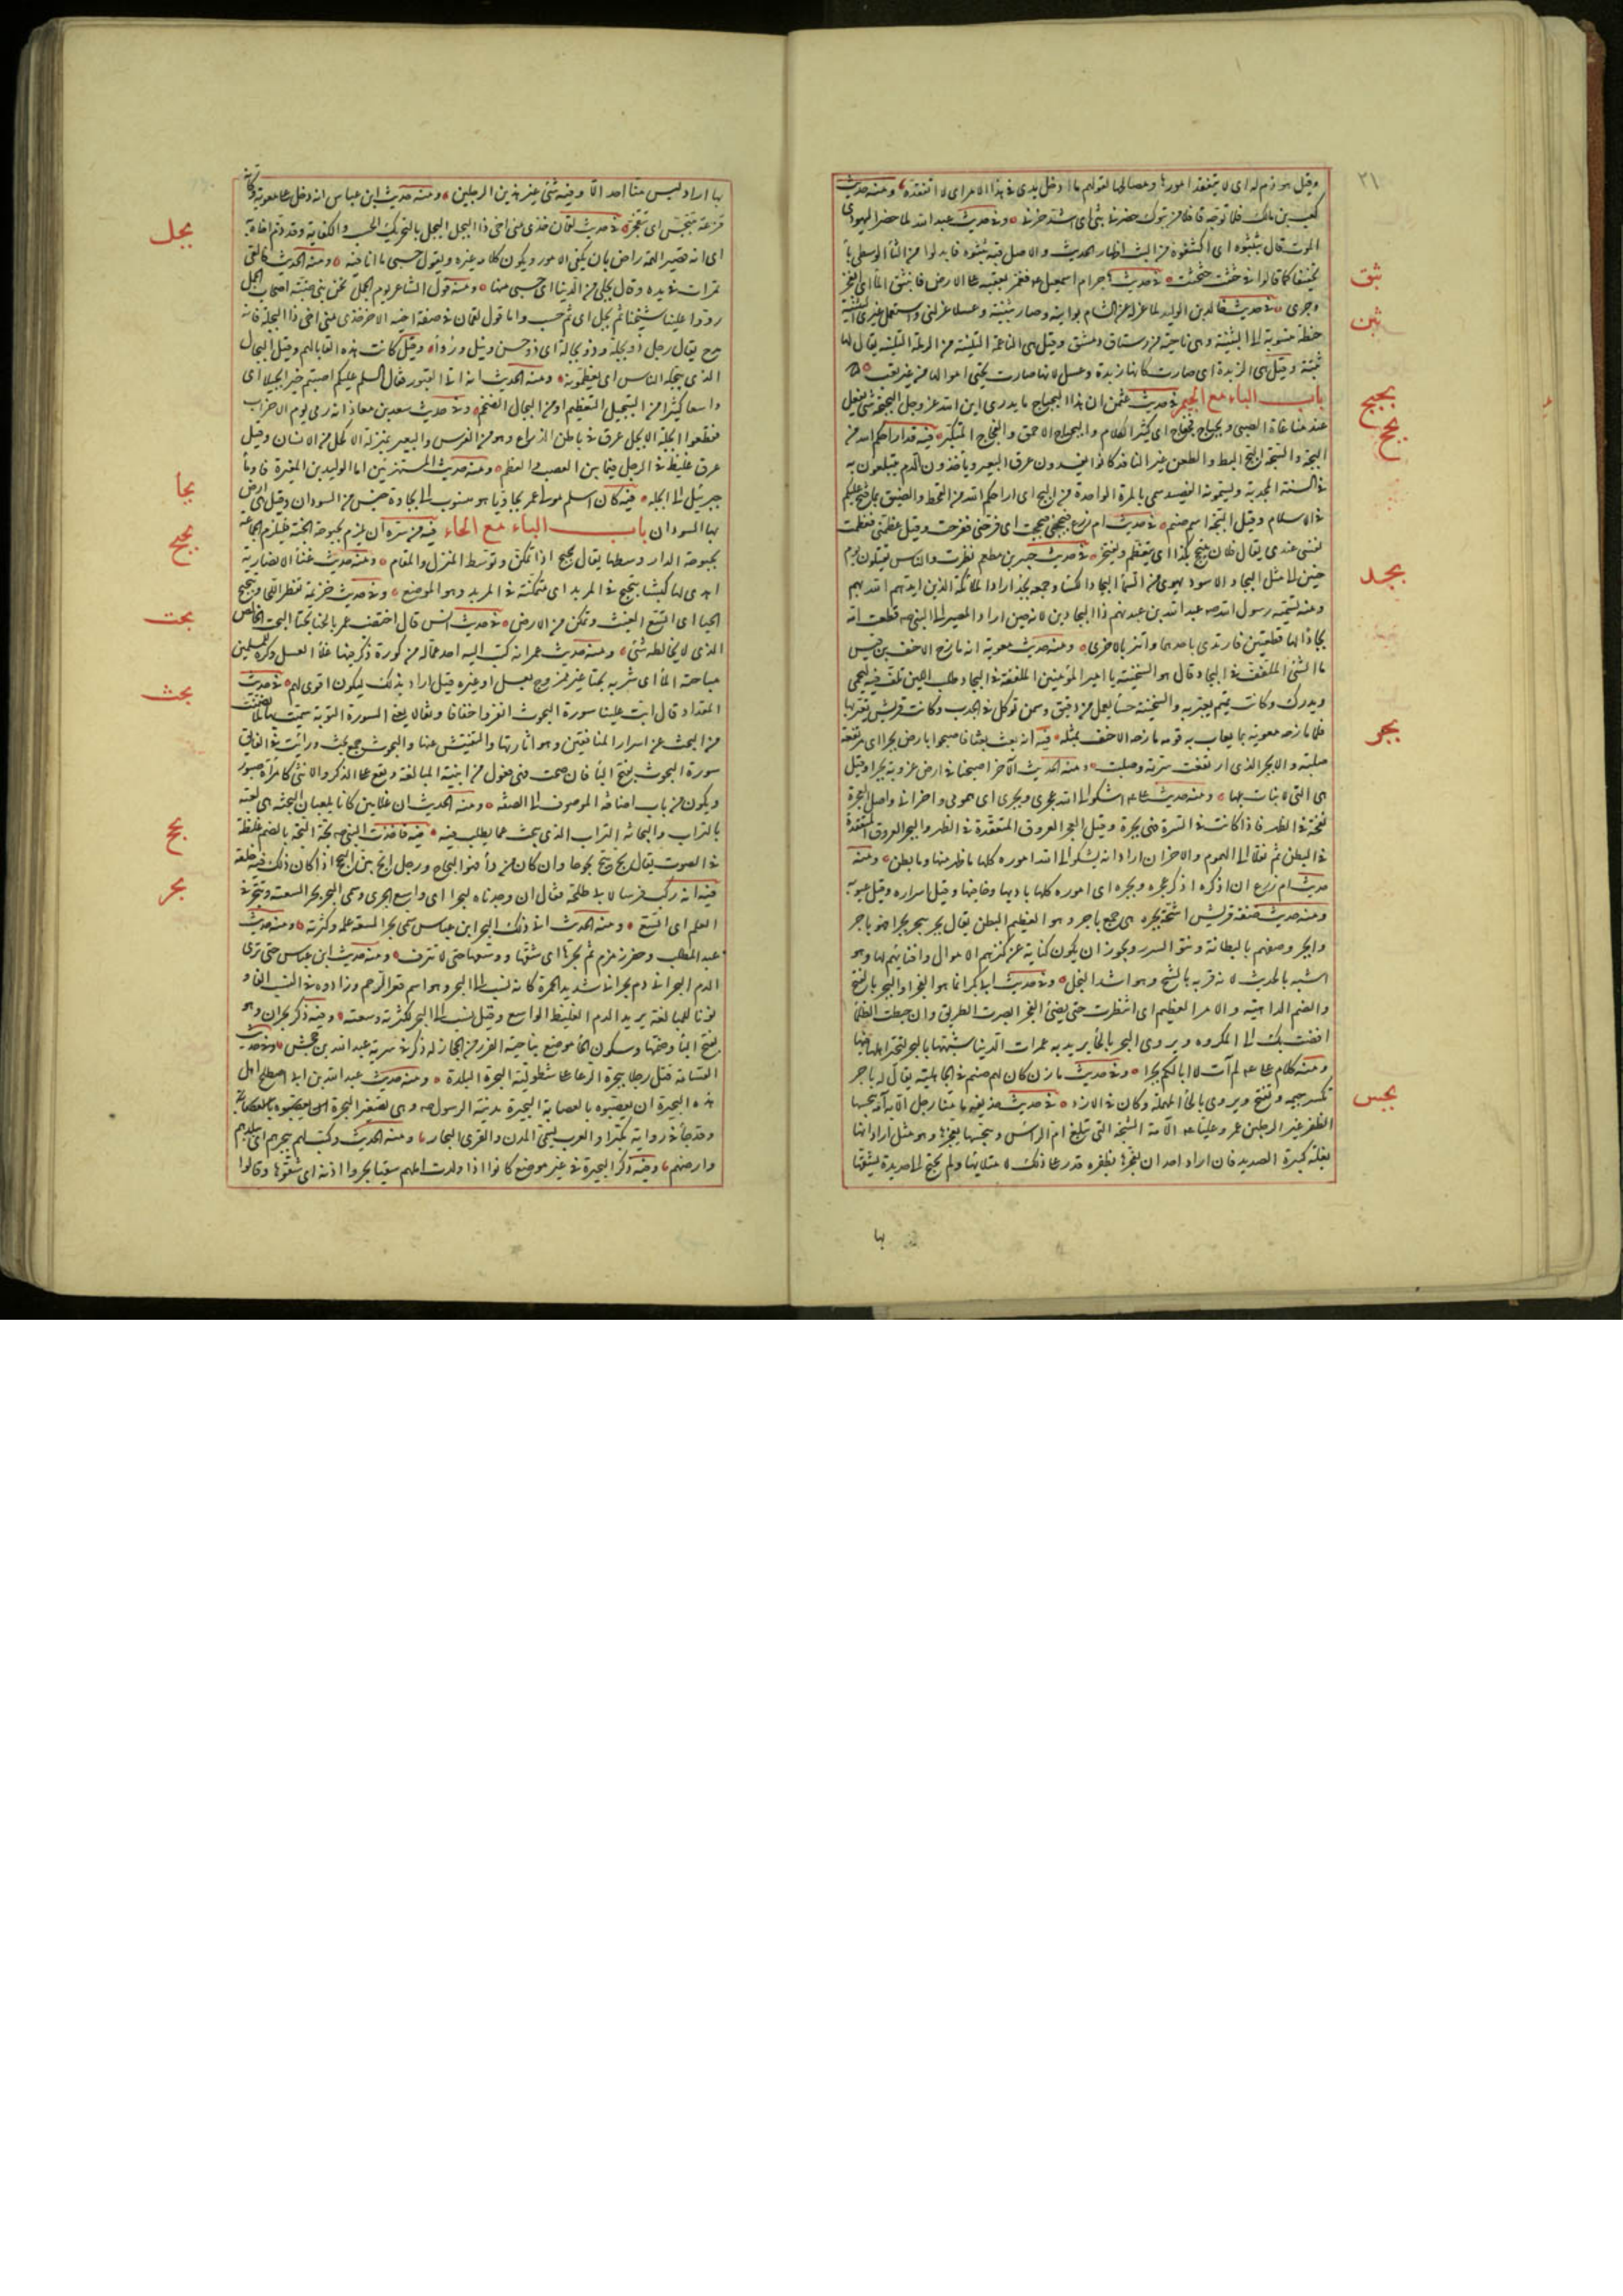 ٢١
وقيل هو ذم له اى لا يتفقد امورها ومصالحها لقولهم ما ادخل يدى فى هذا الامر اى لا اتفقده ومنه حديث
كعب بن مالك فلما توجه قافلا من تبوك حضرنى بثى اى اشتد حزنى وفى حديث عبد الله لما حضر اليهودى
الموت قال بثبثوه اى اكشفوه من البث اظهار الحديث والاصل فيه بثثوه فابدلوا من الثاء الوسطى باء
تخفيفا كما قالوا فى حثثت حثحثت فى حديث هاجر ام اسمعيل فغمز بعقبه على الارض فانبثق الماء اى انفجر
وجرى فى حديث خالد بن الوليد لما عزله عن الشام بوانيه وصار بثنية وعسلا عزلنى واستعمل غيرى البثنية
حنطة منسوبة الى البثنة وهى ناحية من رستاق دمشق وقيل هى الناعمة اللينة من الرملة اللينة يقال لها
بثنة وقيل هى الزبدة اى صارت كانها زبدة وعسل لانها صارت تجبى اموالها من غير تعب
باب الباء مع الجيم فى حديث عثمن ان هذا البجباج ما يدرى اين الله عز وجل البجبجة شئ يفعل
عند مناغاة الصبى وبجباج فجفاج اى كثير الكلام والبجباج الاحمق والفجفاج المتكبر فيه قد اراحكم الله من
البجة والسجة البج البط والطعن غير النافذ كانوا يفصدون عرق البعير وياخذون الدم يتبلغون به
فى السنة المجدبة ويسمونه الفصيد سمى بالمرة الواحدة من البج اى اراحكم الله من القحط والضيق بما فتح عليكم
فى الاسلام وقيل البجة اسم صنم فى حديث ام زرع وبجحنى فبجحت اى فرحنى ففرحت وقيل عظمنى فعظمت
نفسى عندى يقال فلان يتبجح بكذا اى يتعظم ويفتخر فى حديث جبير بن مطعم نظرت والناس يقتتلون يوم
حنين الى مثل البجاد الاسود يهوى من السماء البجاد الكساء وجمعه بجد اراد الملائكة الذين ايدهم الله بهم
ومنه تسمية رسول الله عبد الله بن عبد نهم ذا البجادين لانه حين اراد المصير الى النبى قطعت امه
بجادا لها قطعتين فارتدى باحدهما واتزر بالاخرى ومنه حديث معوية انه مازح الاحنف بن قيس
ما الشئ الملفف فى البجاد قال هو السخينة يا امير المؤمنين الملفف فى البجاد وطب اللبن يلف فيه ليحمى
ويدرك وكانت تميم تعير به والسخينة حساء يعمل من دقيق وسمن يوكل فى الجدب وكانت قريش تعير بها
فلما مازحه معوية بما يعاب به قومه مازحه الاحنف بمثله فيه انه بعث بعثا فاصبحوا بارض بجراء اى مرتفعة
صلبة والابجر الذى ارتفعت سرته وصلبت ومنه الحديث الآخر اصبحنا فى ارض عزوبة بجراء وقيل
هى التى لا نبات بها ومنه حديث على اشكو الى الله عجرى وبجرى اى همومى واحزانى واصل العجرة
نفخة فى الظهر فاذا كانت فى السرة فهى بجرة وقيل العجر العروق المتعقدة فى الظهر والبجر العروق المتعقدة
فى البطن ثم نقلا الى الهموم والاحزان اراد انه يشكو الى الله اموره كلها ما ظهر منها وما بطن ومنه
حديث ام زرع ان اذكره اذكر عجره وبجره اى اموره كلها باديها وخافيها وقيل اسراره وقيل عيوبه
ومنه حديث صفة قريش اشحة بجرة هى جمع باجر وهو العظيم البطن يقال بجر يبجر بجرا فهو باجر
وابجر وصفهم بالبطانة ونتو السرر ويجوز ان يكون كناية عن كنزهم الاموال واقتنائهم لها وهو
اشبه بالحديث لانه قرنه بالشح وهو اشد البخل وفى حديث ابى بكر انما هو الفجر او البجر بالفتح
والضم الداهية والامر العظيم اى انتظرت حتى يضئ الفجر ابصرت الطريق وان خبطت الظلماء
افضت بك الى المكروه ويروى البحر بالحاء يريد به غمرات الدنيا شبهها بالبحر لتحير اهلها فيها
ومنه كلام على لم آت لا ابا لكم بجرا وفى حديث مازن كان لهم صنم فى الجاهلية يقال له باجر
تكسر جيمه وتفتح ويروى بالحاء المهملة وكان فى الازد فى حديث حذيفة ما منا رجل الا به آمة يبجسها
الظفر غير الرجلين عمر وعليا الآمة الشجة التى تبلغ ام الراس ويبجسها يفجرها وهو مثل اراد انها
نغلة كثيرة الصديد فان اراد احد ان يفجرها بظفره قدر على ذلك لامتلائها ولم يحتج الى حديدة يشقها
بها
بثق
بثن
بجبج
بجج
بجد
بجر
بجس
بها اراد ليس منا احد الا وفيه شئ غير هذين الرجلين ومنه حديث ابن عباس انه دخل على معوية وكانه
قزعة يتبجس اى يتفجر فى حديث لقان خذى منى اخى ذا البجل البجل بالتحريك الحسب والكفاية وقد ذم اخاه به
اى انه قصير الهمة راض بان يكفى الامور ويكون كلا على غيره ويقول حسبى ما انا فيه ومنه الحديث فالقى
تمرات فى يده وقال بجلى من الدنيا اى حسبى منها ومنه قول الشاعر يوم الجمل نحن بنى ضبة اصحاب الجمل
ردوا علينا شيخنا ثم بجل اى ثم حسب واما قول لقمان فى صفة اخيه الآخر خذى منى اخى ذا البجلة فانه
مدح يقال رجل ذو بجلة وذو بجالة اى ذو حسن ونبل ورواء وقيل كانت هذه القابا لهم وقيل البجال
الذى يبجله الناس اى يعظمونه ومنه الحديث انه اتى القبور فقال السلم عليكم اصبتم خيرا بجيلا اى
واسعا كثيرا من التبجيل التعظيم او من البجال الضخم وفى حديث سعد بن معاذ انه رمى يوم الاحزاب
فقطعوا ابجله الابجل عرق فى باطن الذراع وهو من الفرس والبعير بمنزلة الاكحل من الانسان وقيل
عرق غليظ فى الرجل فيما بين العصب والعظم ومنه حديث المستهزئين اما الوليد بن المغيرة فاومأ
جبريل الى ابجله فيه كان اسلم مولى عمر بجاويا هو منسوب الى بجاوة جنس من السودان وقيل هى ارض
بها السودان باب الباء مع الحاء فيه من سره ان يلزم بحبوحة الجنة فليلزم الجماعة
بحبوحة الدار وسطها يقال بحبح اذا تمكن وتوسط المنزل والمقام ومنه حديث غناء الانصارية
اهدى لها كبشا يبحبح فى المربد اى متمكنة فى المربد وهو الموضع وفى حديث خزيمة تفطر اللحاء وتبحبح
الحياء اى اتسع الغيث وتمكن من الارض فى حديث انس قال اختضب عمر بالحناء بحتا البحت الخالص
الذى لا يخالطه شئ ومنه حديث عمر انه كتب اليه احد عماله من كورة ذكر فيها غلاء العسل وكره للمسلمين
مباحتة الماء اى شربه بحتا غير ممزوج بعسل او غيره قيل اراد بذلك ليكون اقوى لهم فى حديث
المقداد قال ابت علينا سورة البحوث انفروا خفافا وثقالا يعنى السورة التوبة سميت بها لما تضمنت
من البحث عن اسرار المنافقين وهو اثارتها والتفتيش عنها والبحوث جمع بحث ورايت فى الفائق
سورة البحوث بفتح الباء فان صحت فهى فعول من ابنية المبالغة ويقع على الذكر والانثى كامراة صبور
ويكون من باب اضافة الموصوف الى الصفة ومنه الحديث ان غلامين كانا يلعبان البحثة هى لعبة
بالتراب والبحاثة التراب الذى يبحث عما يطلب فيه فيه فاخذت النبى بحة البحة بالضم غلظة
فى الصوت يقال بح يبح بحوحا وان كان من داء فهو البحاح ورجل ابح بين البحح اذا كان ذلك فيه خلقة
فيه انه ركب فرسا لابى طلحة فقال ان وجدناه لبحرا اى واسع الجرى وسمى البحر بحرا لسعته وتبحر فى
العلم اى اتسع ومنه الحديث ابى ذلك البحر ابن عباس سمى بحرا لسعة علمه وكثرته ومنه حديث
عبد المطلب وحفر زمزم ثم بحرها اى شقها ووسعها حتى لا تنزف ومنه حديث ابن عباس حتى ترى
الدم البحرانى دم بحرانى شديد الحمرة كانه نسب الى البحر وهو اسم قعر الرحم وزادوه فى النسب الفا و
نونا للمبالغة يريد الدم الغليظ الواسع وقيل نسب الى البحر لكثرته وسعته وفيه ذكر بحران وهو
بفتح الباء وضمها وسكون الحاء موضع بناحية الفرع من الحجاز له ذكر فى سرية عبد الله بن جحش وفى حديث
القسامة قتل رجلا ببحرة الرعاء على شط لية البحرة البلدة ومنه حديث عبد الله بن ابى اصطلح اهل
هذه البحيرة ان يعصبوه بالعصابة البحيرة مدينة الرسول وهى تصغير البحرة
وقد جاء فى رواية مكبرا والعرب تسمى المدن والقرى البحار ومنه الحديث وكتب لهم ببحرهم اى ببلدهم
وارضهم وفيه ذكر البحيرة فى غير موضع كانوا اذا ولدت ابلهم سقبا بحروا اذنه اى شقوها وقالوا
بجل
بجا
بحبح
بحت
بحث
بحح
بحر